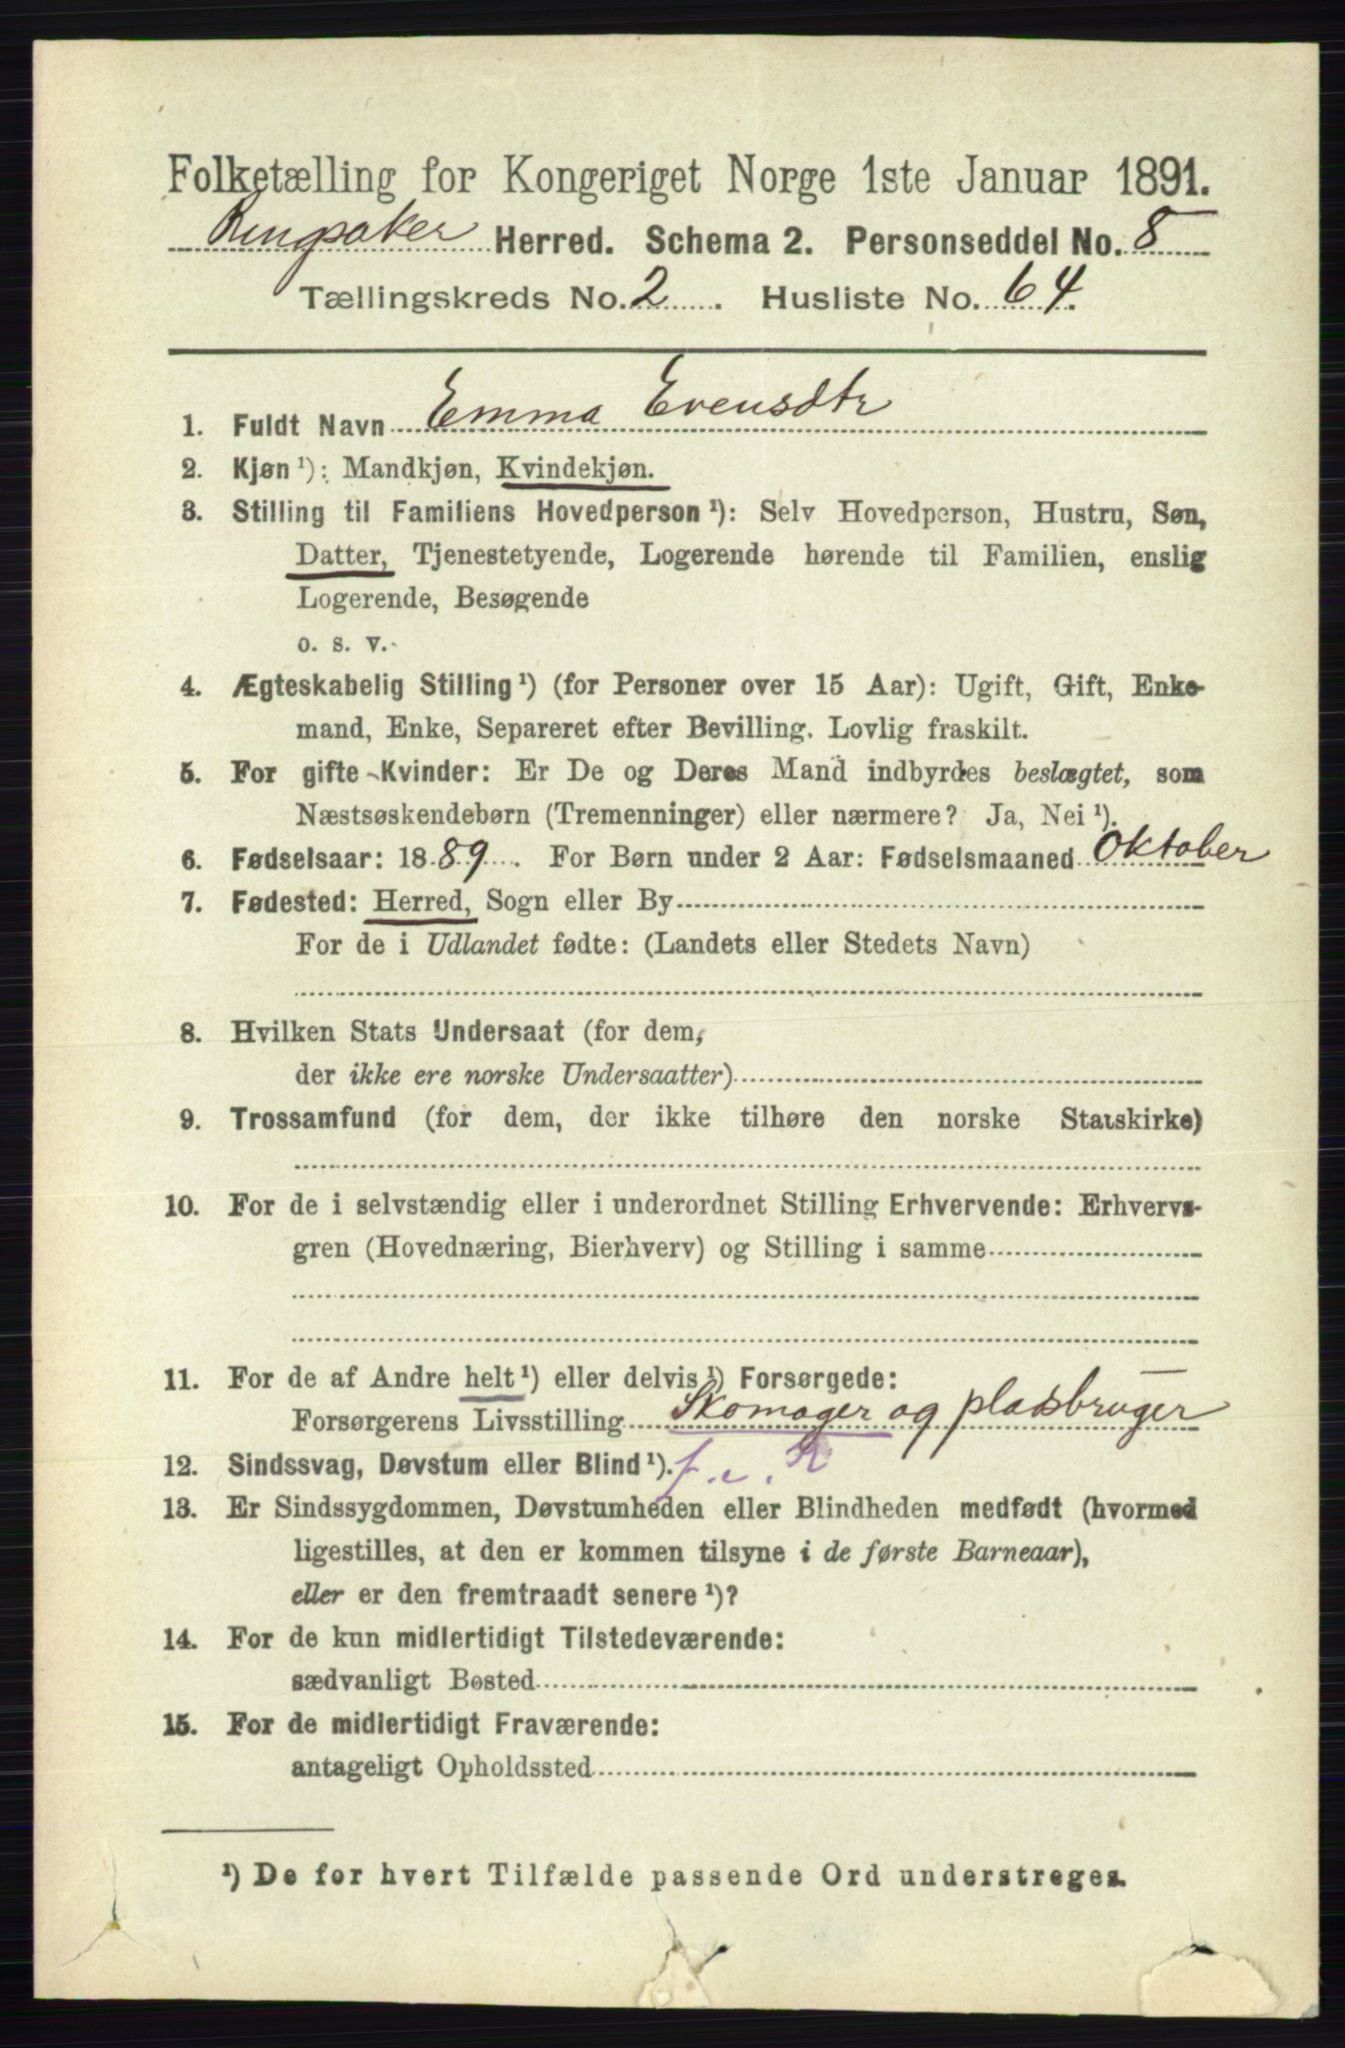 Folketælling for Kongeriget Norge 1ste Januar 1891.
Ringsaker Herred. Schema 2. Personseddel No. 8
Tællingskreds No. 2. Husliste No. 64.
1. Fuldt Navn Emma Evensdtr
2. Kjøn ¹): Mandkjøn, Kvindekjøn.
3. Stilling til Familiens Hovedperson ¹): Selv Hovedperson, Hustru, Søn,
Datter, Tjenestetyende, Logerende hørende til Familien, enslig
Logerende, Besøgende
o. s. v.
4. Ægteskabelig Stilling ¹) (for Personer over 15 Aar): Ugift, Gift, Enke-
mand, Enke, Separeret efter Bevilling. Lovlig fraskilt.
5. For gifte Kvinder: Er De og Deres Mand indbyrdes beslægtet, som
Næstsøskendebørn (Tremenninger) eller nærmere? Ja, Nei ¹).
6. Fødselsaar: 1889. For Børn under 2 Aar: Fødselsmaaned Oktober
7. Fødested: Herred, Sogn eller By
For de i Udlandet fødte: (Landets eller Stedets Navn)
8. Hvilken Stats Undersaat (for dem,
der ikke ere norske Undersaatter)
9. Trossamfund (for dem, der ikke tilhøre den norske Statskirke)
10. For de i selvstændig eller i underordnet Stilling Erhvervende: Erhvervs-
gren (Hovednæring, Bierhverv) og Stilling i samme
11. For de af Andre helt ¹) eller delvis ¹) Forsørgede:
Forsørgerens Livsstilling Skomager og pladsbruger
12. Sindssvag, Døvstum eller Blind ¹).
13. Er Sindssygdommen, Døvstumheden eller Blindheden medfødt (hvormed
ligestilles, at den er kommen tilsyne i de første Barneaar),
eller er den fremtraadt senere ¹)?
14. For de kun midlertidigt Tilstedeværende:
sædvanligt Bosted
15. For de midlertidigt Fraværende:
antageligt Opholdssted
¹) De for hvert Tilfælde passende Ord understreges.